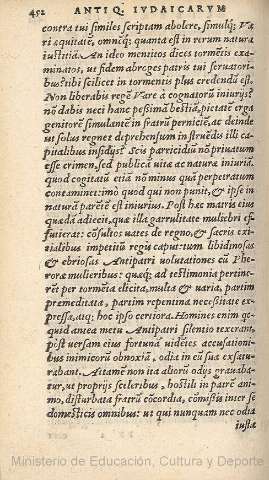 452 ANTIQ. IVDAICARVM
contra tui similes scriptam abolere, simulq; Va
ri æquitatē, omnēq; quanta est in rerum natura
iustitia. An ideo menitos dices tormētis exa-
minatos, ut fidem abroges patris tui seruatori-
bus? tibi scilicet in tormentis plus credendū est.
Non liberabis regē Vare à cognatorū iniurijs?
nō dabis neci hanc pessimā bestiā, pietatē erga
genitorē simulantē in fratrū perniciē, ac deinde
ut solus regnet deprehensum in struēdis illi ca-
pitalibus insidijs? Scis parricidiū nō priuatum
esse crimen, sed publicā uitæ ac naturæ iniuriā:
quod cogitatū etiā nō minus quā perpetratum
contaminet: imò quod qui non punit, & ipse in
naturā parētē est iniurius. Post hæc matris eius
quædā adiecit, quæ illa garrulitate muliebri ef-
futierat: cōsultos uates de regno, & sacris ex i-
tialebus impetitū regis caput: tum libidinosas
& ebriosas Antipatri uolutationes cū Phe-
roræ mulieribus: quæq; ad testimonia pertinē-
ret per tormēta elicita, multa & uaria, partim
præmeditata, partim repentina necessitate ex-
pressa, atq; hoc ipso certiora. Homines enim qc-
quid antea metu Antipatri silentio texerant,
pòst uersam eius fortunā uidētes accusationi-
bus inimicorū obnoxiā, odia in eū sua exsatu-
rabant. Attamē non ita alioru odys grauaba-
tur, ut proprijs sceleribus, hostili in patrē ani-
mo, disturbata fratrū cōcordia, cōmistis inter se
domesticis omnibus: ut qui nunquam nec odia
iustæ
Ministerio de Educación, Cultura y Deporte